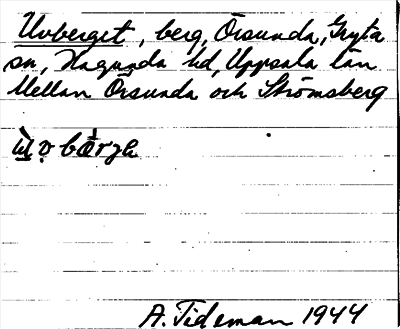 Uvberget, berg, Örsunda, Gryta
sn, Hagunda hd, Uppsala län
Mellan Örsunda och Strömsberg
A. Tideman 1944